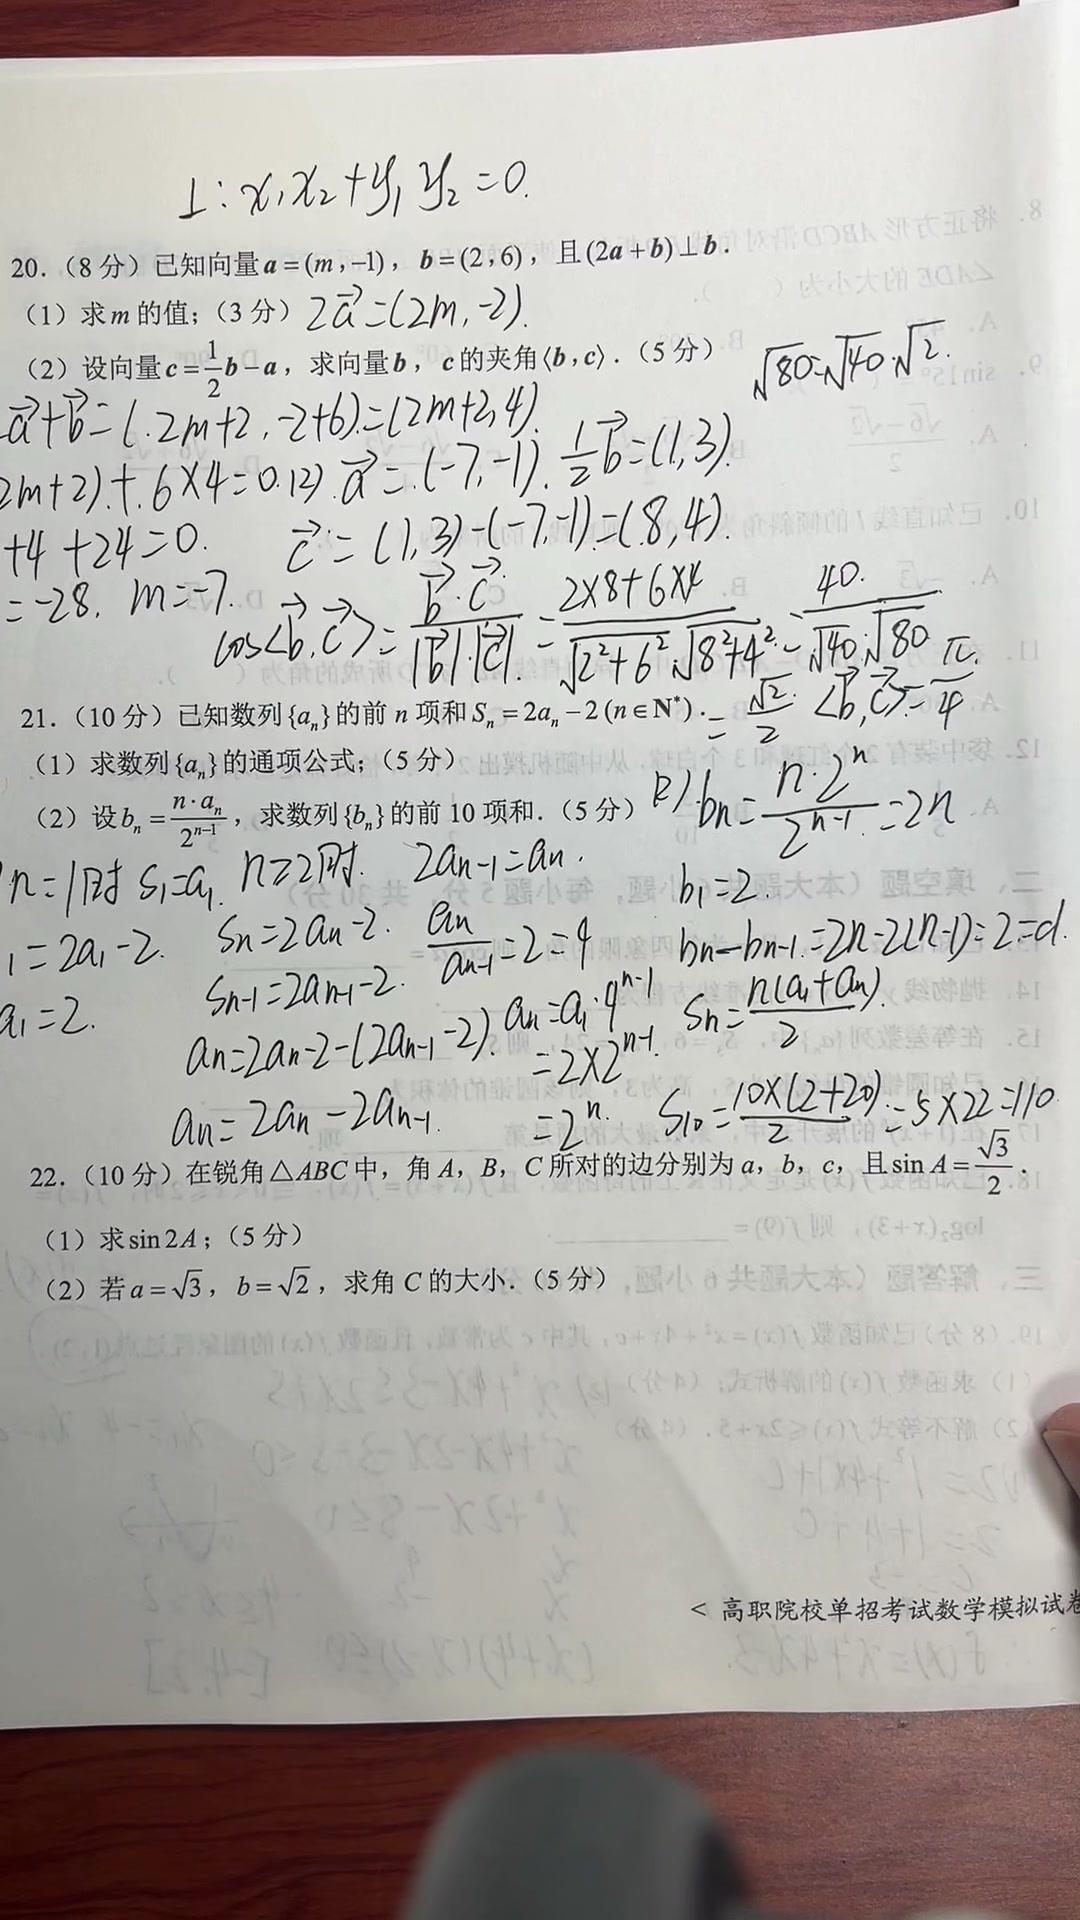 ⊥:x₁x₂+y₁y₂=0.
20.（8分）已知向量a=(m,-1)，b=(2,6)，且(2a+b)⊥b.
（1）求m的值;（3分）2a⃗=(2m,-2).
（2）设向量c=1/2b-a，求向量b，c的夹角⟨b,c⟩.（5分）
√80=√40·√2.
a⃗+b⃗=(2m+2,-2+6)=(2m+2,4).
2m+2)+6×4=0.(2) a⃗=(-7,-1). 1/2b⃗=(1,3).
+4+24=0. c⃗=(1,3)-(-7,-1)=(8,4).
=-28. m=-7.
cos<b⃗,c⃗>=b⃗·c⃗/|b⃗|·|c⃗|=2×8+6×4/√2²+6²·√8²+4²=40/√40·√80
=√2/2. <b⃗,c⃗>=π/4
21.（10分）已知数列{aₙ}的前n项和Sₙ=2aₙ-2(n∈N*).
（1）求数列{aₙ}的通项公式;（5分）
（2）设bₙ=n·aₙ/2ⁿ⁻¹，求数列{bₙ}的前10项和.（5分）
(2) bn=n·2ⁿ/2ⁿ⁻¹=2n
n=1时 S₁=a₁. n≥2时. 2an-1=an.
b₁=2.
1=2a₁-2. Sn=2an-2. an/an-1=2=q
bn-bn-1=2n-2(n-1)=2=d.
a₁=2. Sn-1=2an-1-2. an=a₁·qⁿ⁻¹
Sn=n(a₁+an)/2.
an=2an-2-(2an-1-2). =2×2ⁿ⁻¹.
an=2an-2an-1. =2ⁿ. S₁₀=10×(2+20)/2=5×22=110
22.（10分）在锐角△ABC中，角A，B，C所对的边分别为a，b，c，且sinA=√3/2.
（1）求sin2A;（5分）
（2）若a=√3，b=√2，求角C的大小.（5分）
< 高职院校单招考试数学模拟试卷